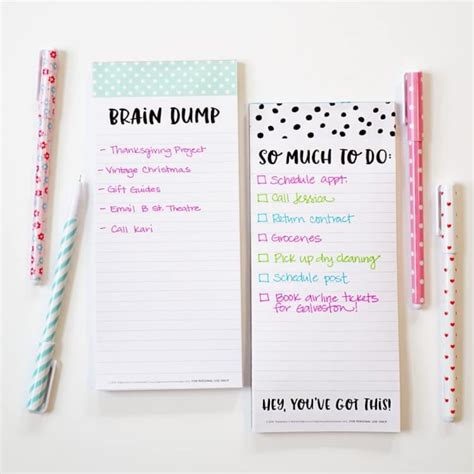 BRAIN DUMP
- Thanksgiving Project
- Vintage Christmas
- Gift Guides
- Email B St. Theatre
- Call Kari
SO MUCH TO DO:
Schedule appt.
Call Jessica
Return contract
Groceries
Pick up dry cleaning
Schedule post
Book airline tickets
for Galveston!
HEY, YOU'VE GOT THIS!